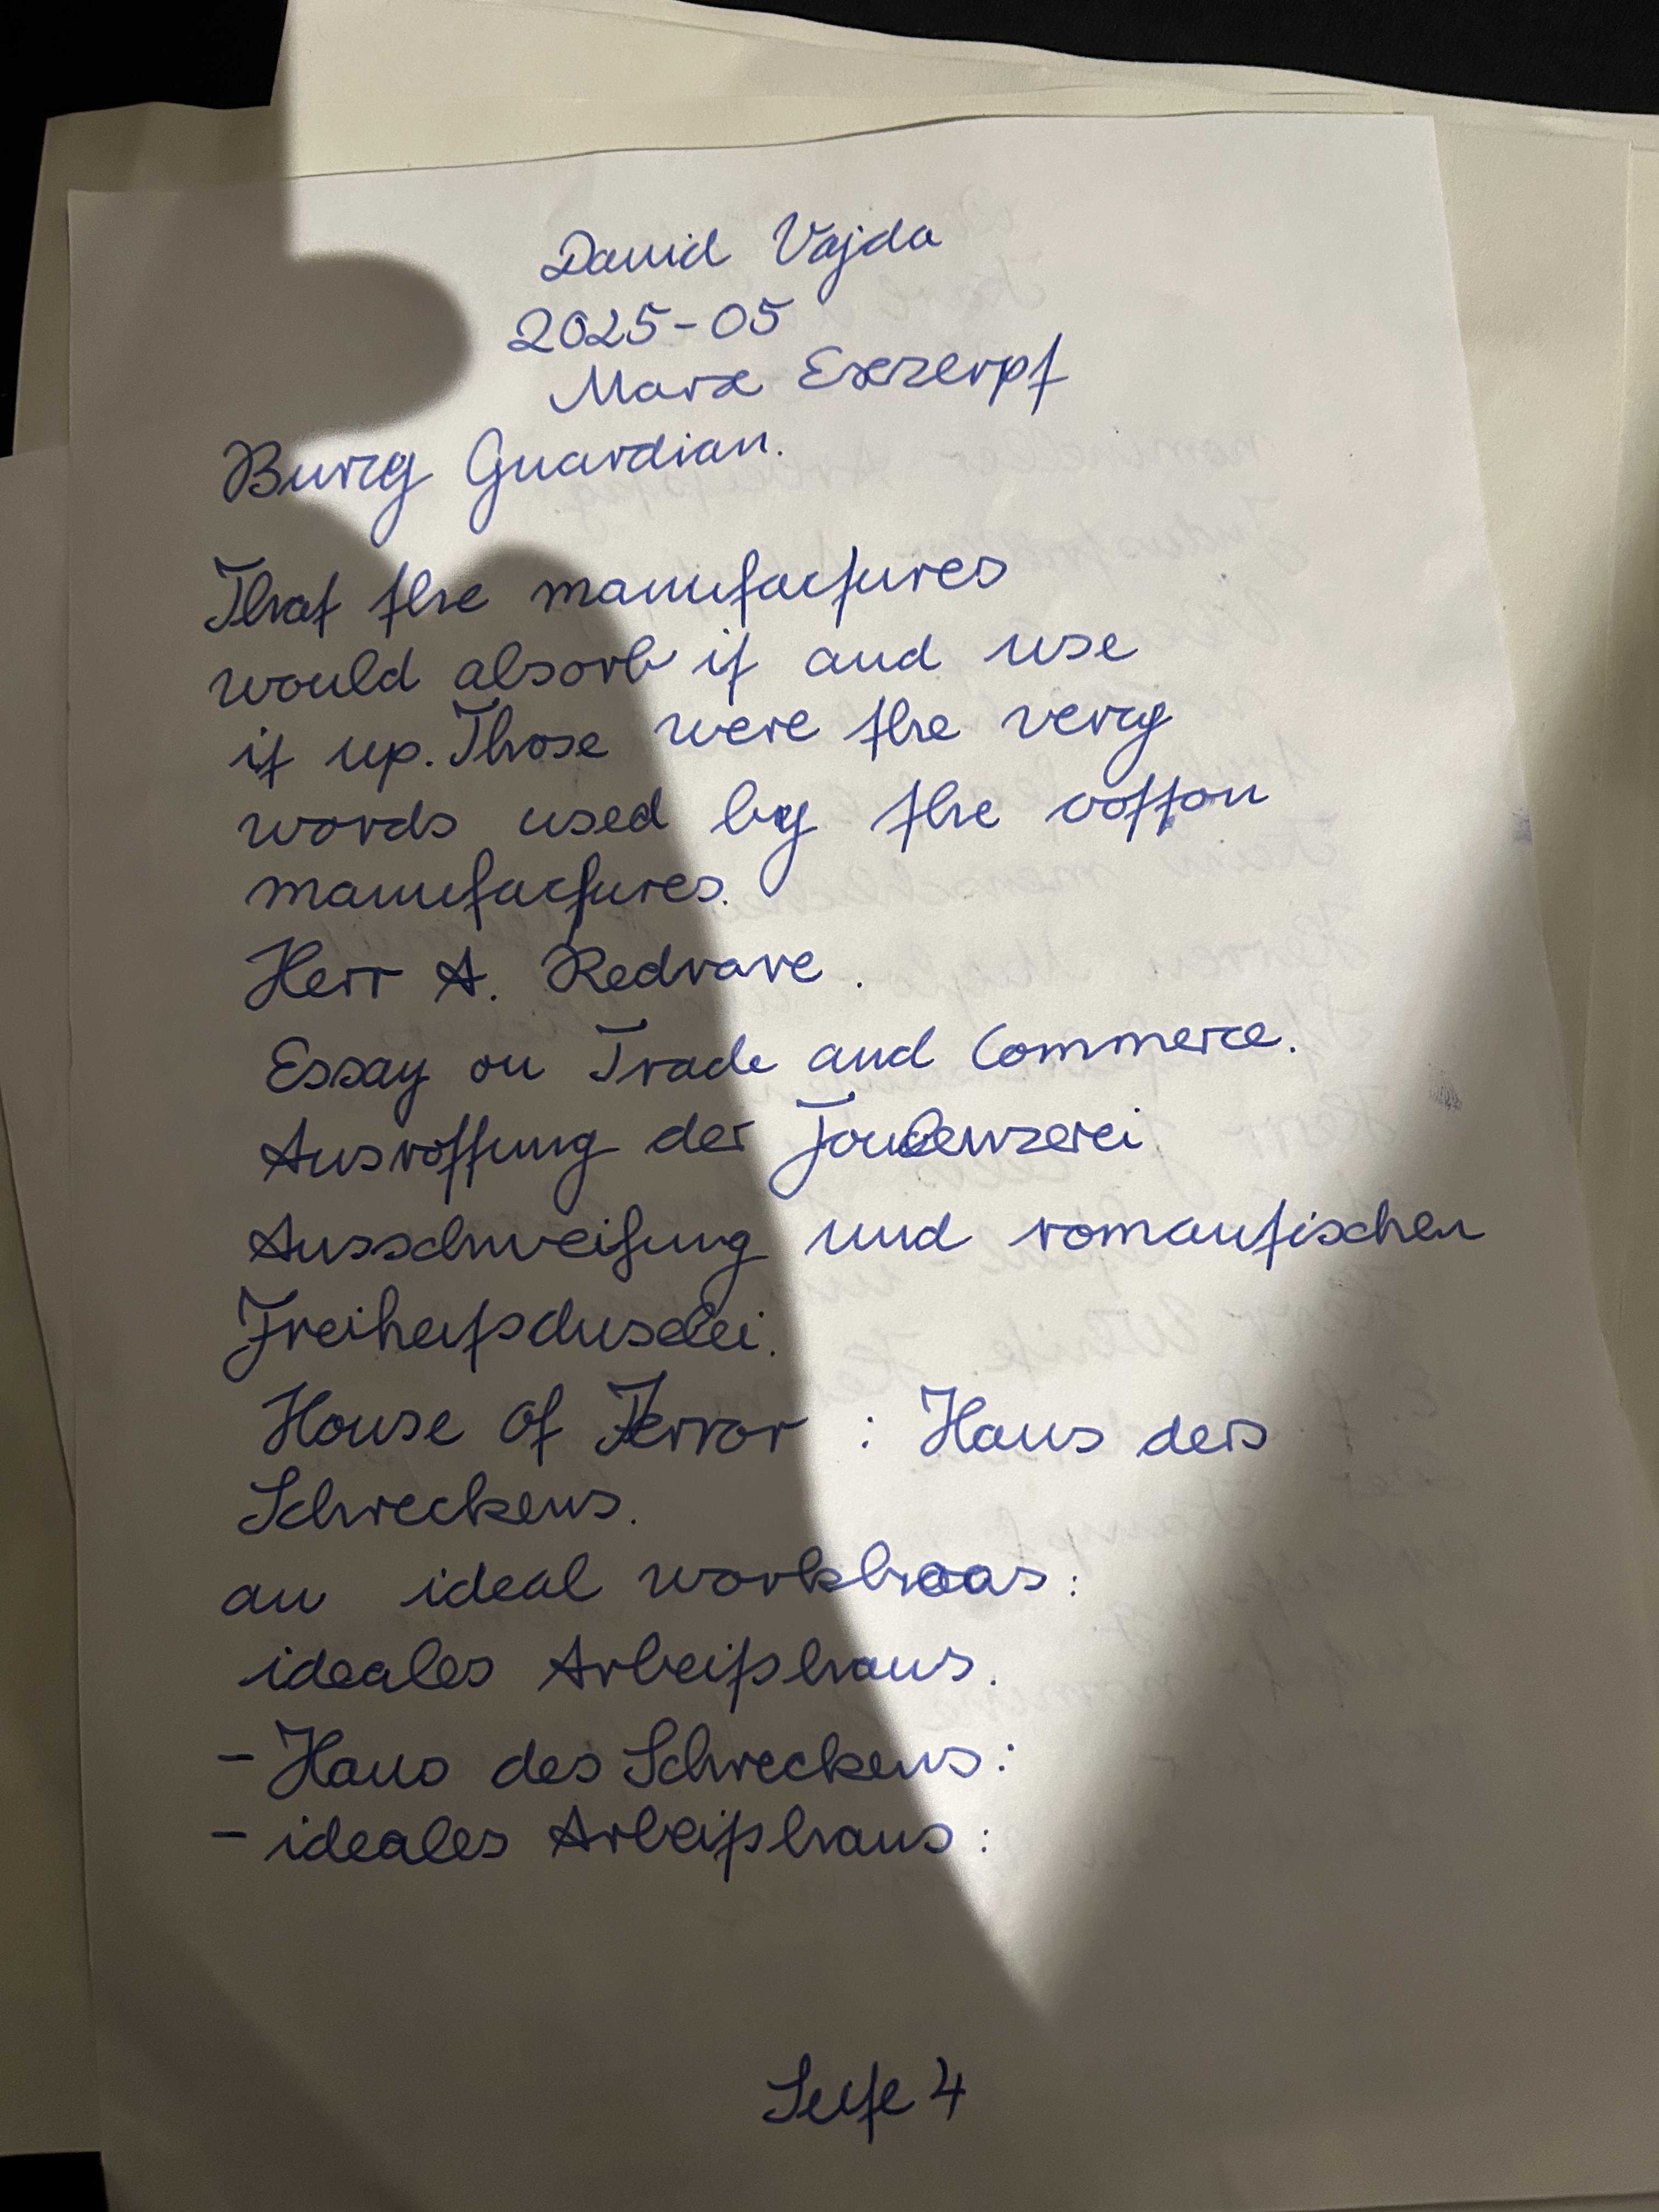 David Vajda
2025-05
Marx Exzerpt
Bury Guardian.
That the manufactures
would absorb it and use
it up. Those were the very
words used by the cotton
manufactures.
Herr A. Redrave.
Essay on Trade and Commerce.
Ausrottung der Faulenzerei
Ausschweifung und romantischen
Freiheitsduselei.
House of Terror : Haus des
Schreckens.
an ideal
ideales Arbeitshaus.
- Haus des Schreckens:
- ideales Arbeitshaus:
Seite 4